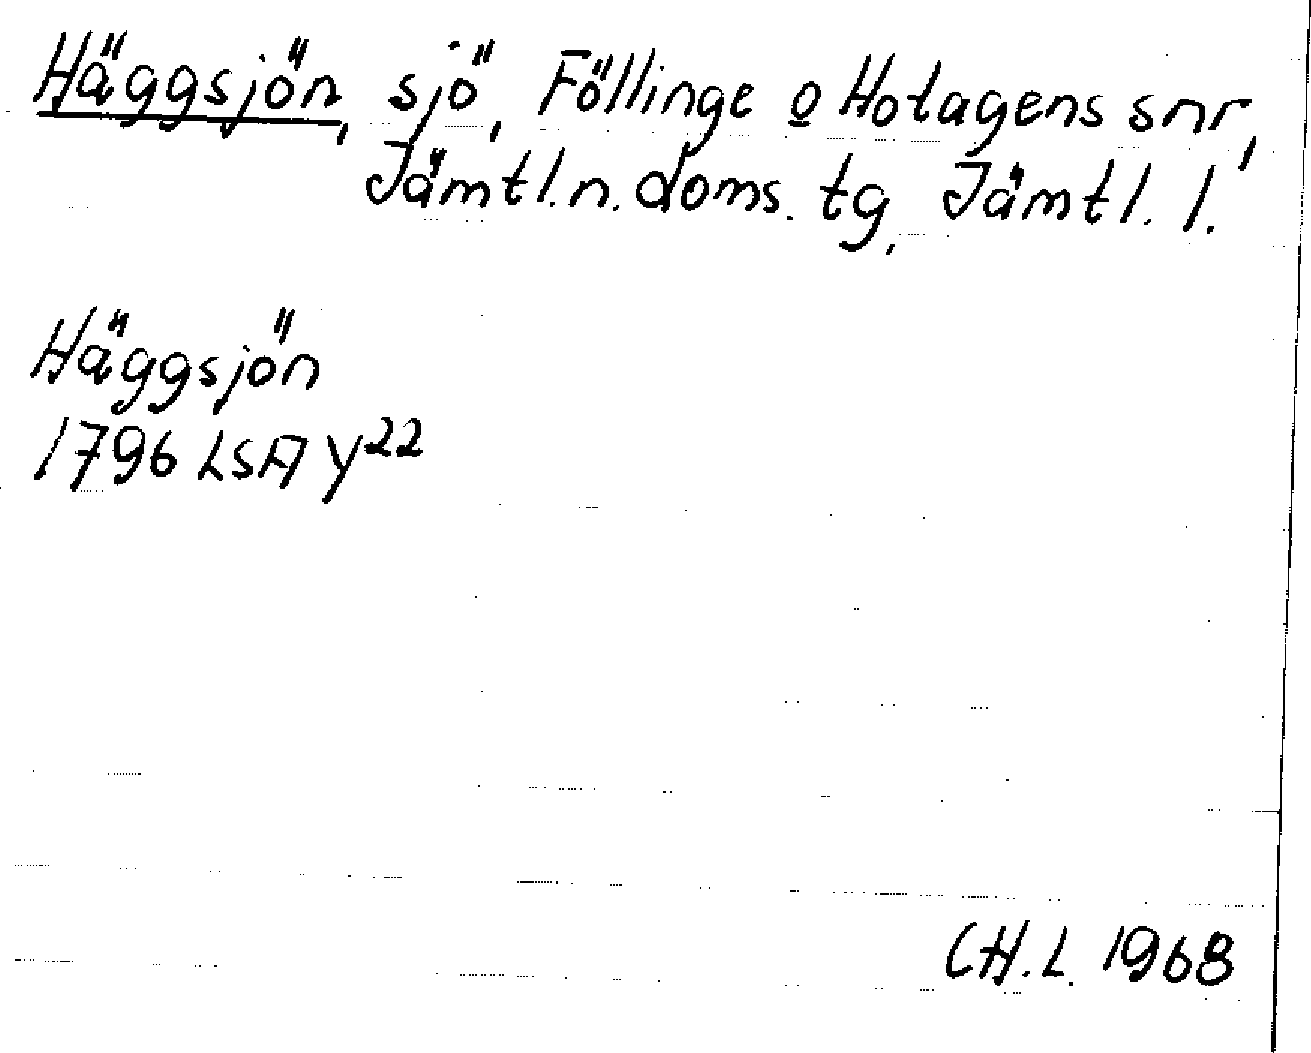 Häggsjön, sjö, Föllinge o Hotagens snr,
Jämtl.n.doms.tg, Jämtl. l.
Häggsjön
1796 LSA Y22
CH.L. 1968